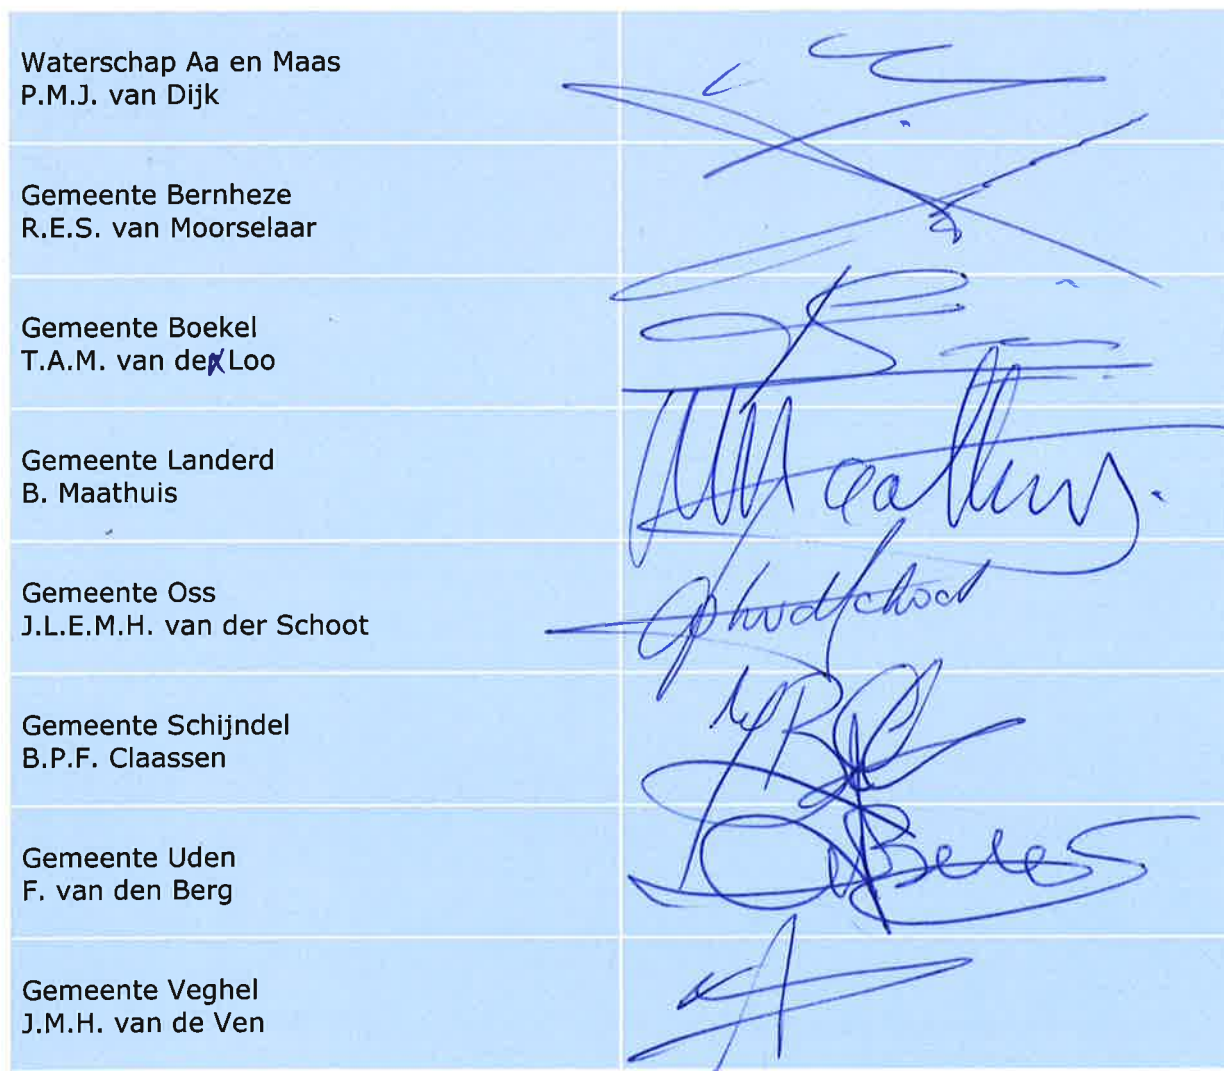 Waterschap Aa en Maas
P.M.J. van Dijk
Gemeente Bernheze
R.E.S. van Moorselaar
Gemeente Boekel
T.A.M. van de Loo
Gemeente Landerd
B. Maathuis
Maathuis.
Gemeente Oss
J.L.E.M.H. van der Schoot
Gemeente Schijndel
B.P.F. Claassen
Gemeente Uden
F. van den Berg
Gemeente Veghel
J.M.H. van de Ven